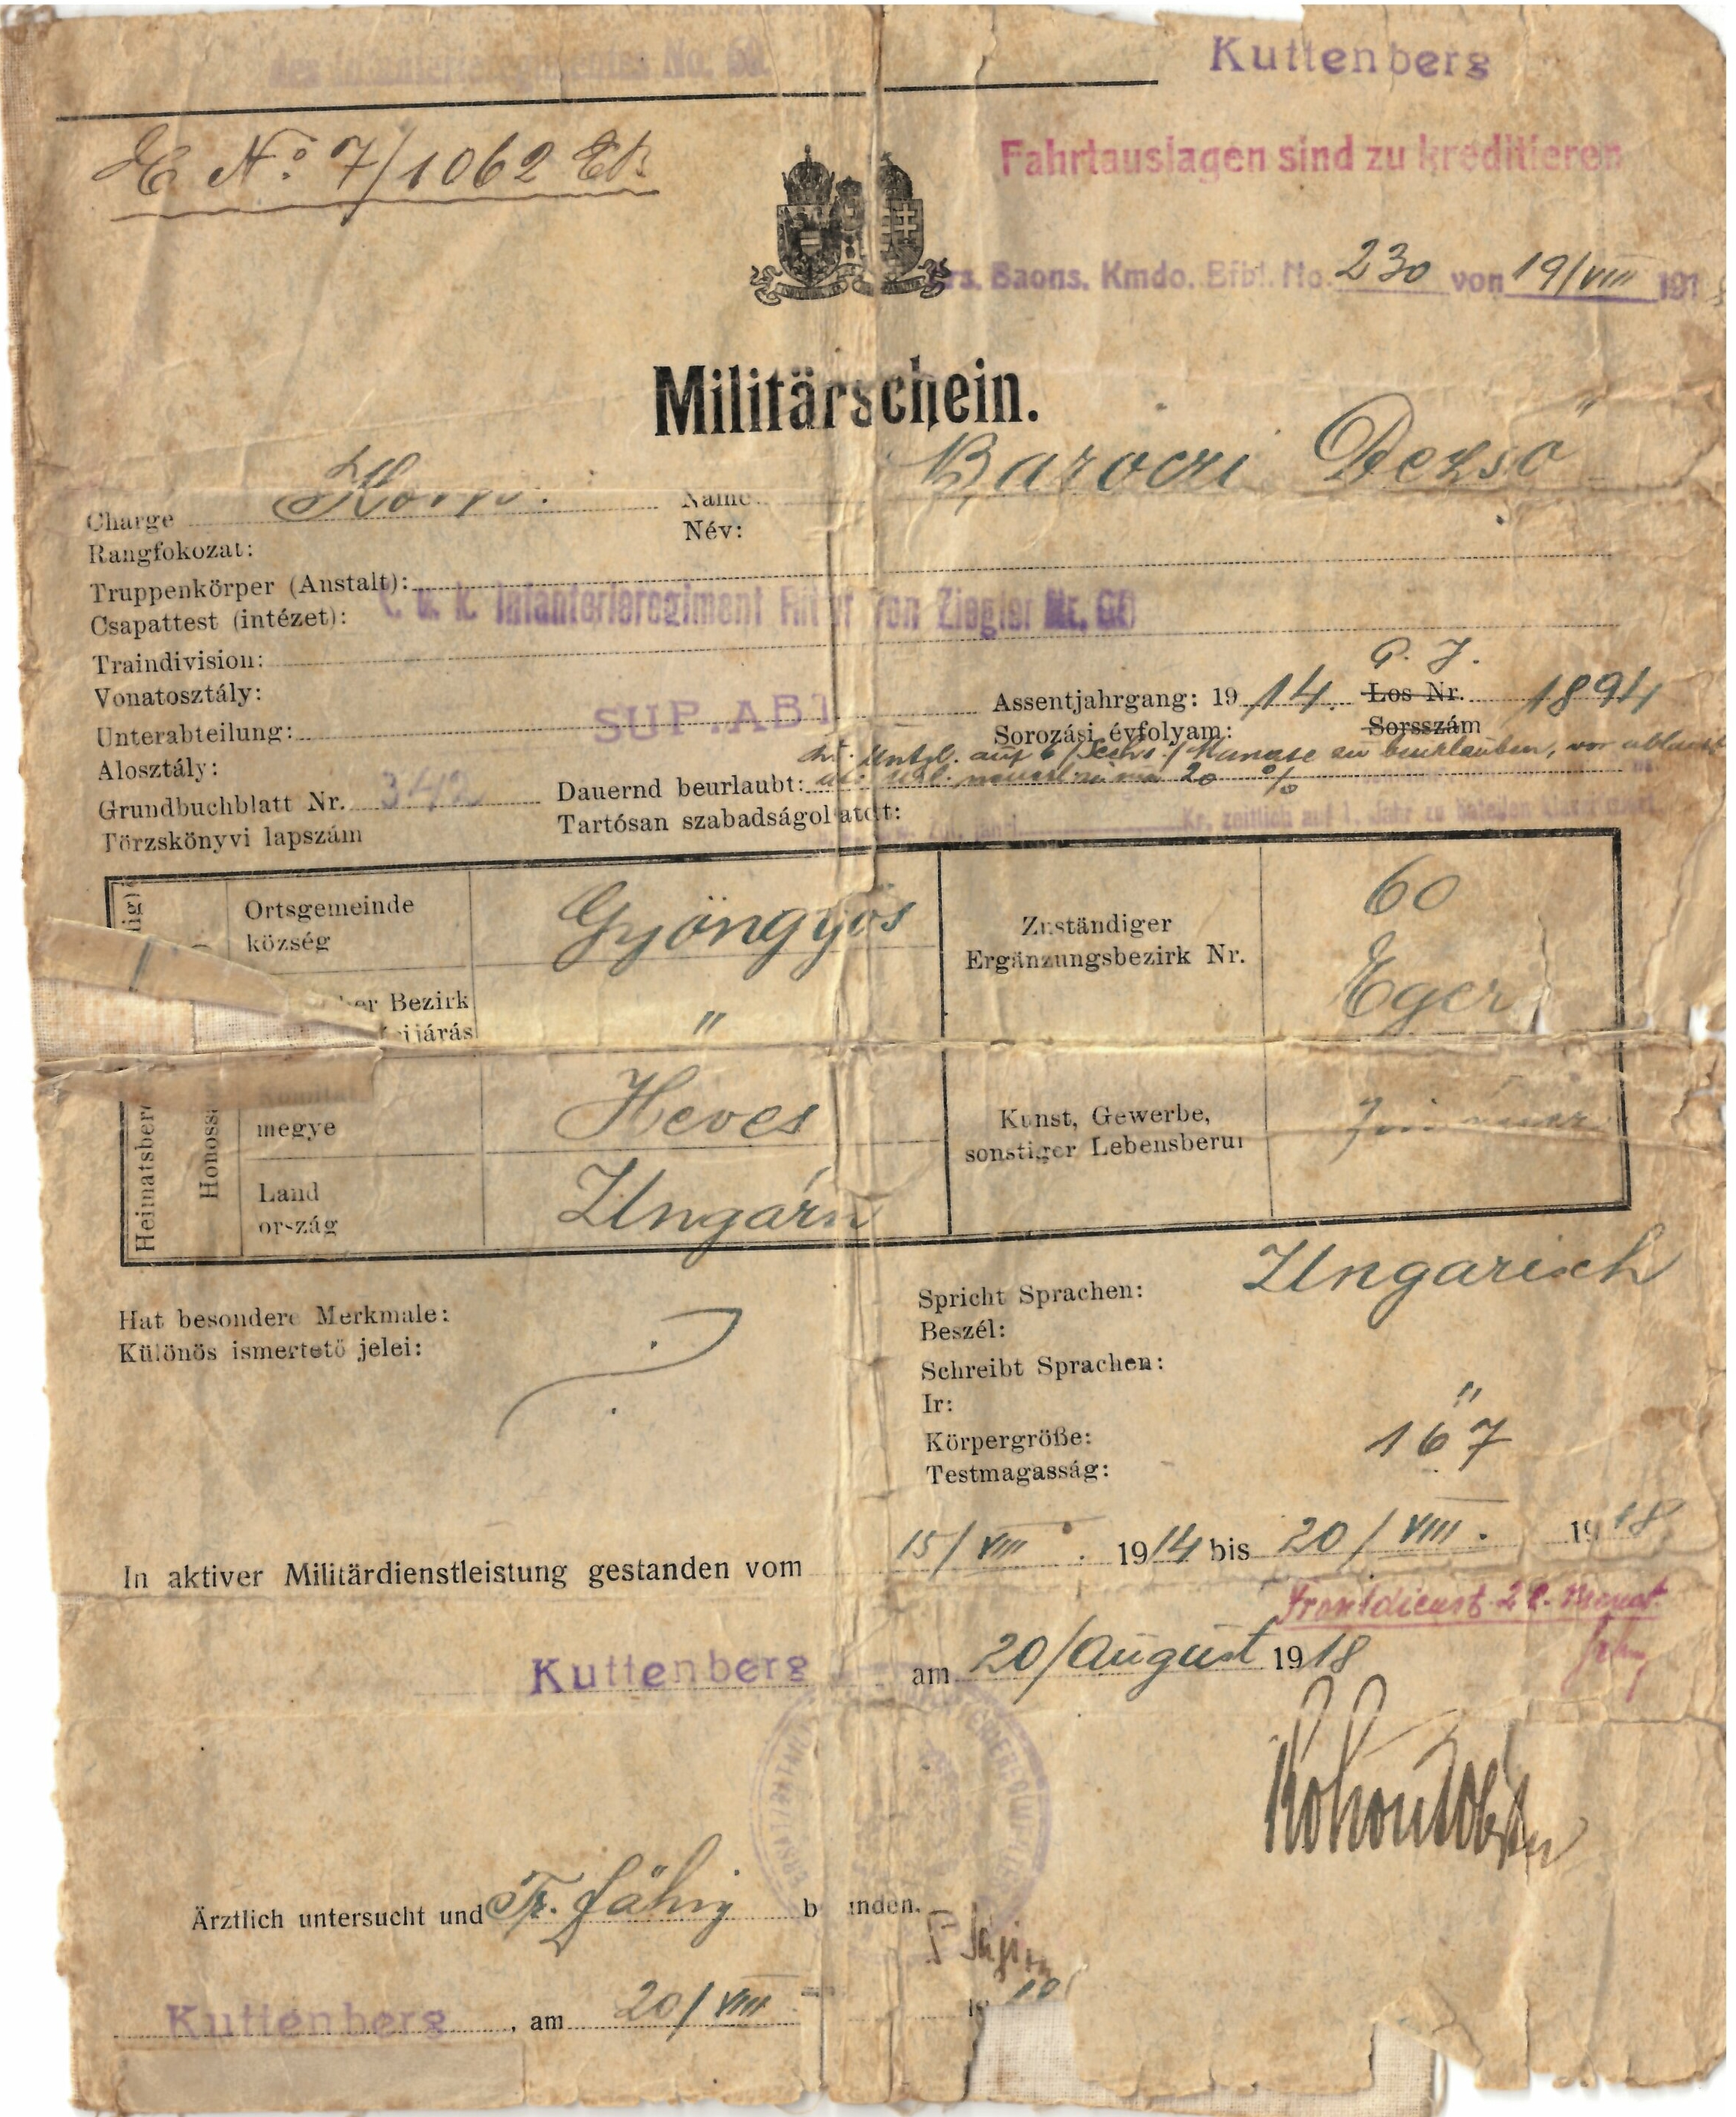 des Infanterieregimentes No. 60.
Kuttenberg
E No 7/1062
Fahrtauslagen sind zu kreditieren
rs. Baons. Kmdo. Bfbl. No. 230 von 19/VIII 191
Militärschein.
Charge Korp. Name Baroczi Dezső
Rangfokozat: Név:
Truppenkörper (Anstalt):
k. u. k. Infanterieregiment Ritter von Ziegler Nr. 60
Csapattest (intézet):
Traindivision:
Vonatosztály:
G. J.
Assentjahrgang: 19 14. Los Nr. 1894
Sorozási évfolyam: Sorsszám
Unterabteilung: SUP. ABT
Alosztály:
auf 6 /sechs/ Monate zu beurlauben, vor
Grundbuchblatt Nr. 342 Dauernd beurlaubt: 20 %
Törzskönyvi lapszám Tartósan szabadságoltatott:
Kr. zeitlich auf 1 Jahr zu
Heimatsbere
Honoss
Ortsgemeinde Gyöngyös
község
Zuständiger 60
Ergänzungsbezirk Nr. Eger
Bezirk "
járás
Komitat Heves
megye
Kunst, Gewerbe,
sonstiger Lebensberuf
Land Ungarn
ország
Hat besondere Merkmale:
Különös ismertető jelei:
Spricht Sprachen: Ungarisch
Beszél:
Schreibt Sprachen: "
Ir:
Körpergröße: 167
Testmagasság:
In aktiver Militärdienstleistung gestanden vom 15/VIII. 1914 bis 20/VIII. 1918
Frontdienst 28. Monat
Kuttenberg am 20/August 1918
Ärztlich untersucht und Fr. fähig b nden.
Kuttenberg, am 20/VIII